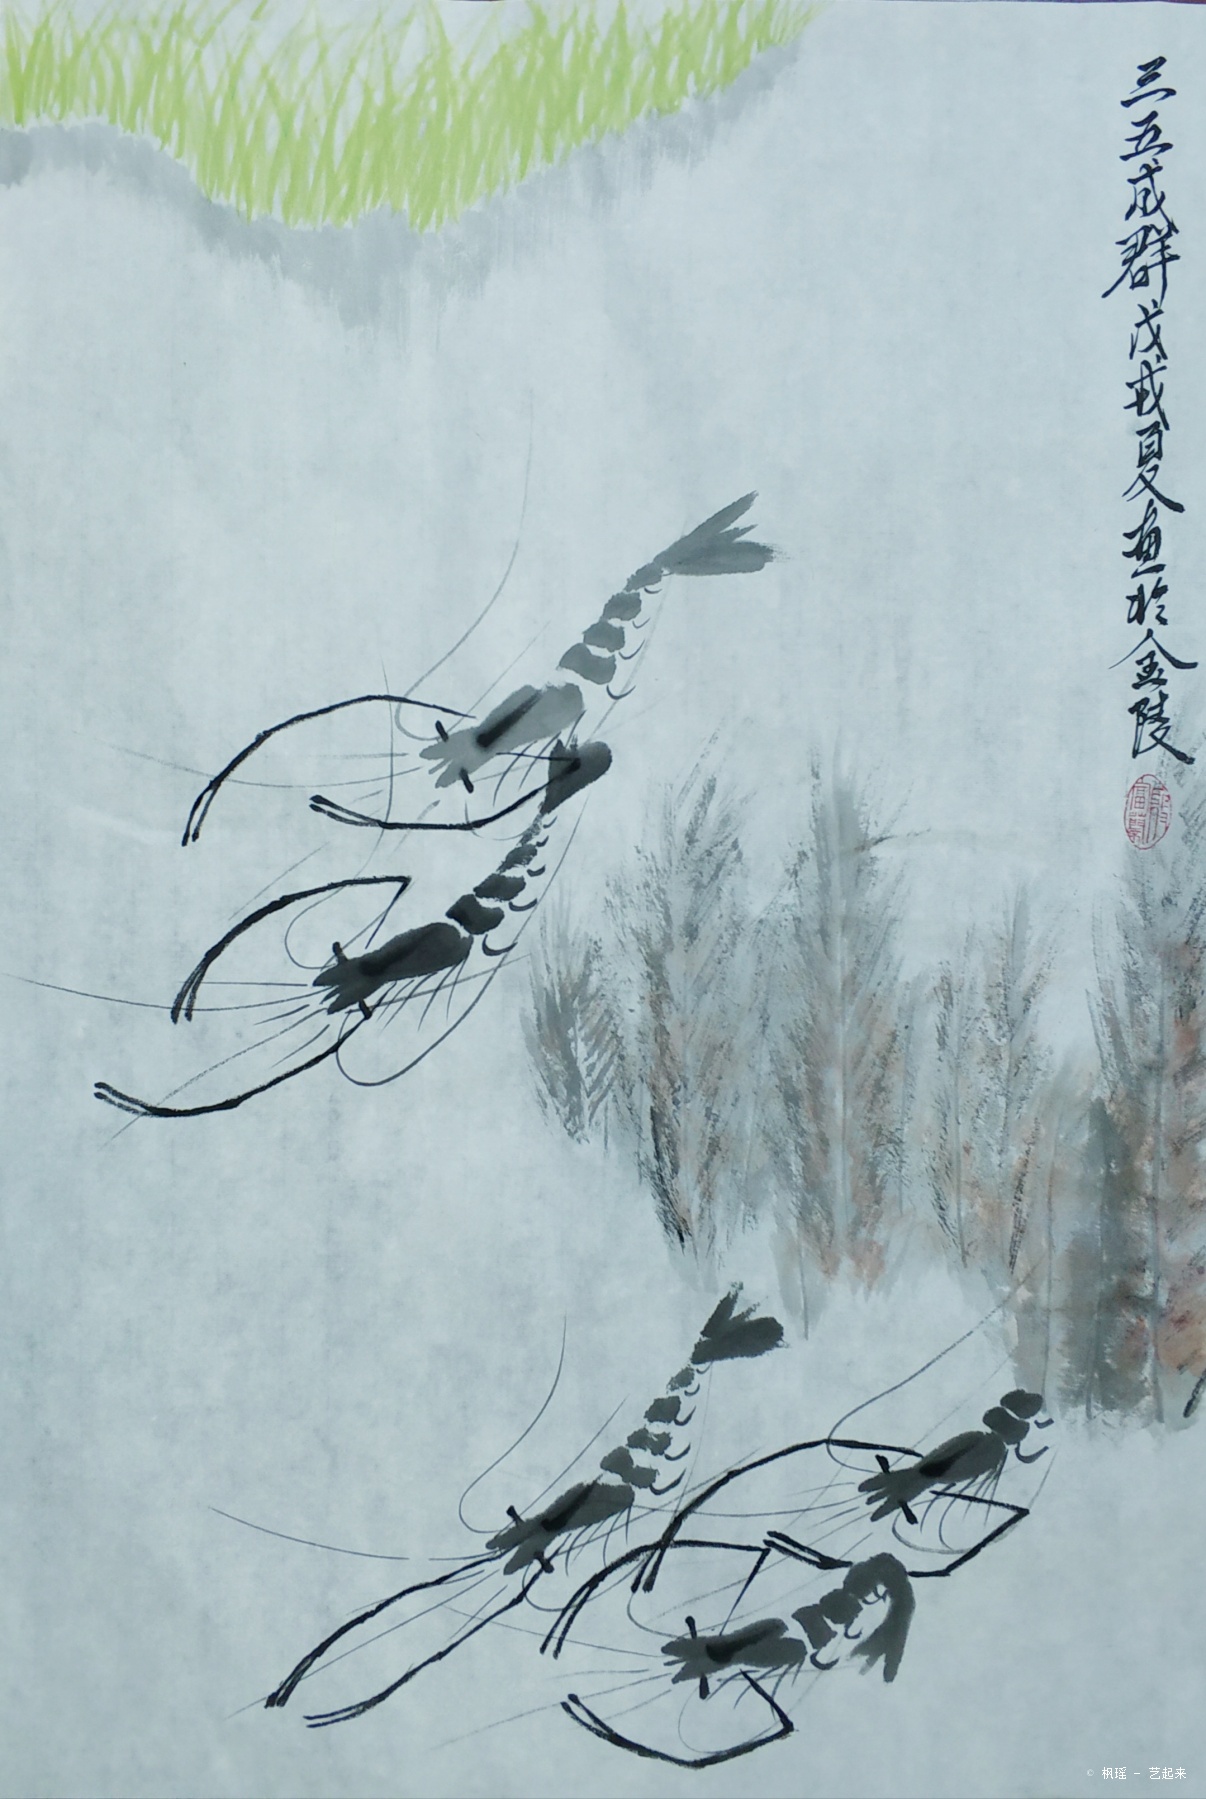 三五成群戊戌夏画於金陵
© 枫瑶 - 艺起来